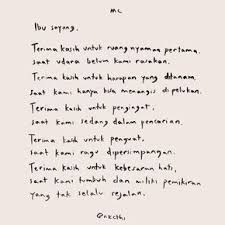 MC
Ibu sayang,
Terima kasih untuk ruang nyaman pertama,
saat udara belum kami rasakan.
Terima kasih untuk harapan yang ditanam,
saat kami hanya bisa menangis dipelukan.
Terima kasih untuk pengingat,
saat kami sedang dalam pencarian.
Terima kasih untuk penguat,
saat kami ragu dipersimpangan.
Terima kasih untuk kebesaran hati,
saat kami tumbuh dan miliki pemikiran
yang tak selalu sejalan.
@nkcthi